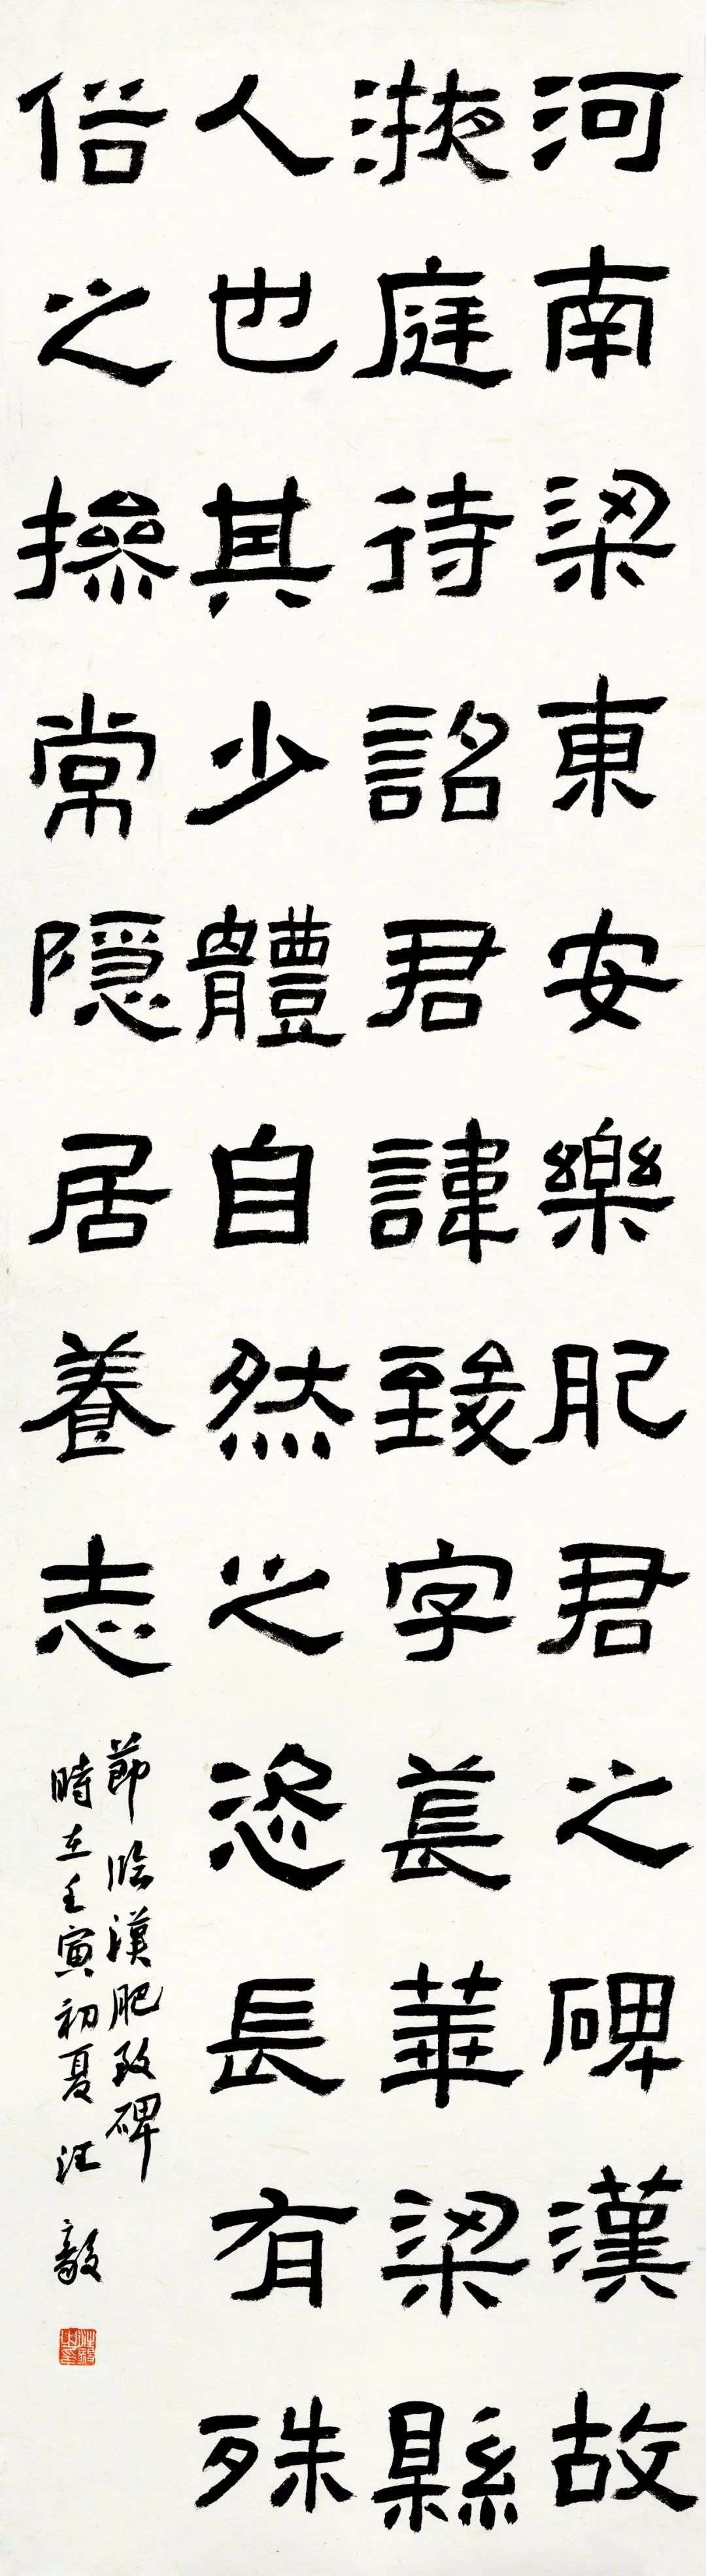 河南梁東安樂肥君之碑漢故
掖庭待詔君諱致字萇華梁縣
人也其少體自然之恣長有殊
俗之操常隱居養志
節臨漢肥致碑
時在壬寅初夏汪毅